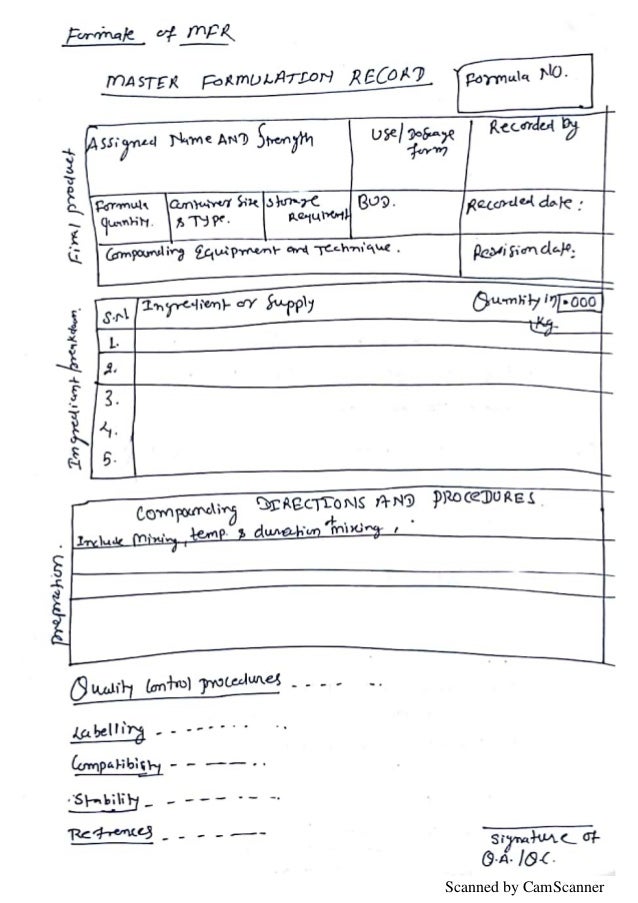 Formate of MFR
MASTER FORMULATION RECORD
Formula NO.
Final product
Assigned Name AND Strength
Use/Dosage form
Recorded by
Formula quantity.
Container Size & Type.
Storage Requirment
BUD.
Recorded date:
Compounding Equipment and Technique.
Revision date:
Ingredient breakdown.
S.N
Ingredient or Supply
Quantity in 1.000
Kg.
1.
2.
3.
4.
5.
Prepration.
Compounding DIRECTIONS AND PROCEDURES.
Include Mixing, temp. & duration + mixing,
Quality Control procedures ---- --
Labelling --------
Compatibisty ------
Stability --------
Refrences ------
Signature of
Q.A./QC.
Scanned by CamScanner